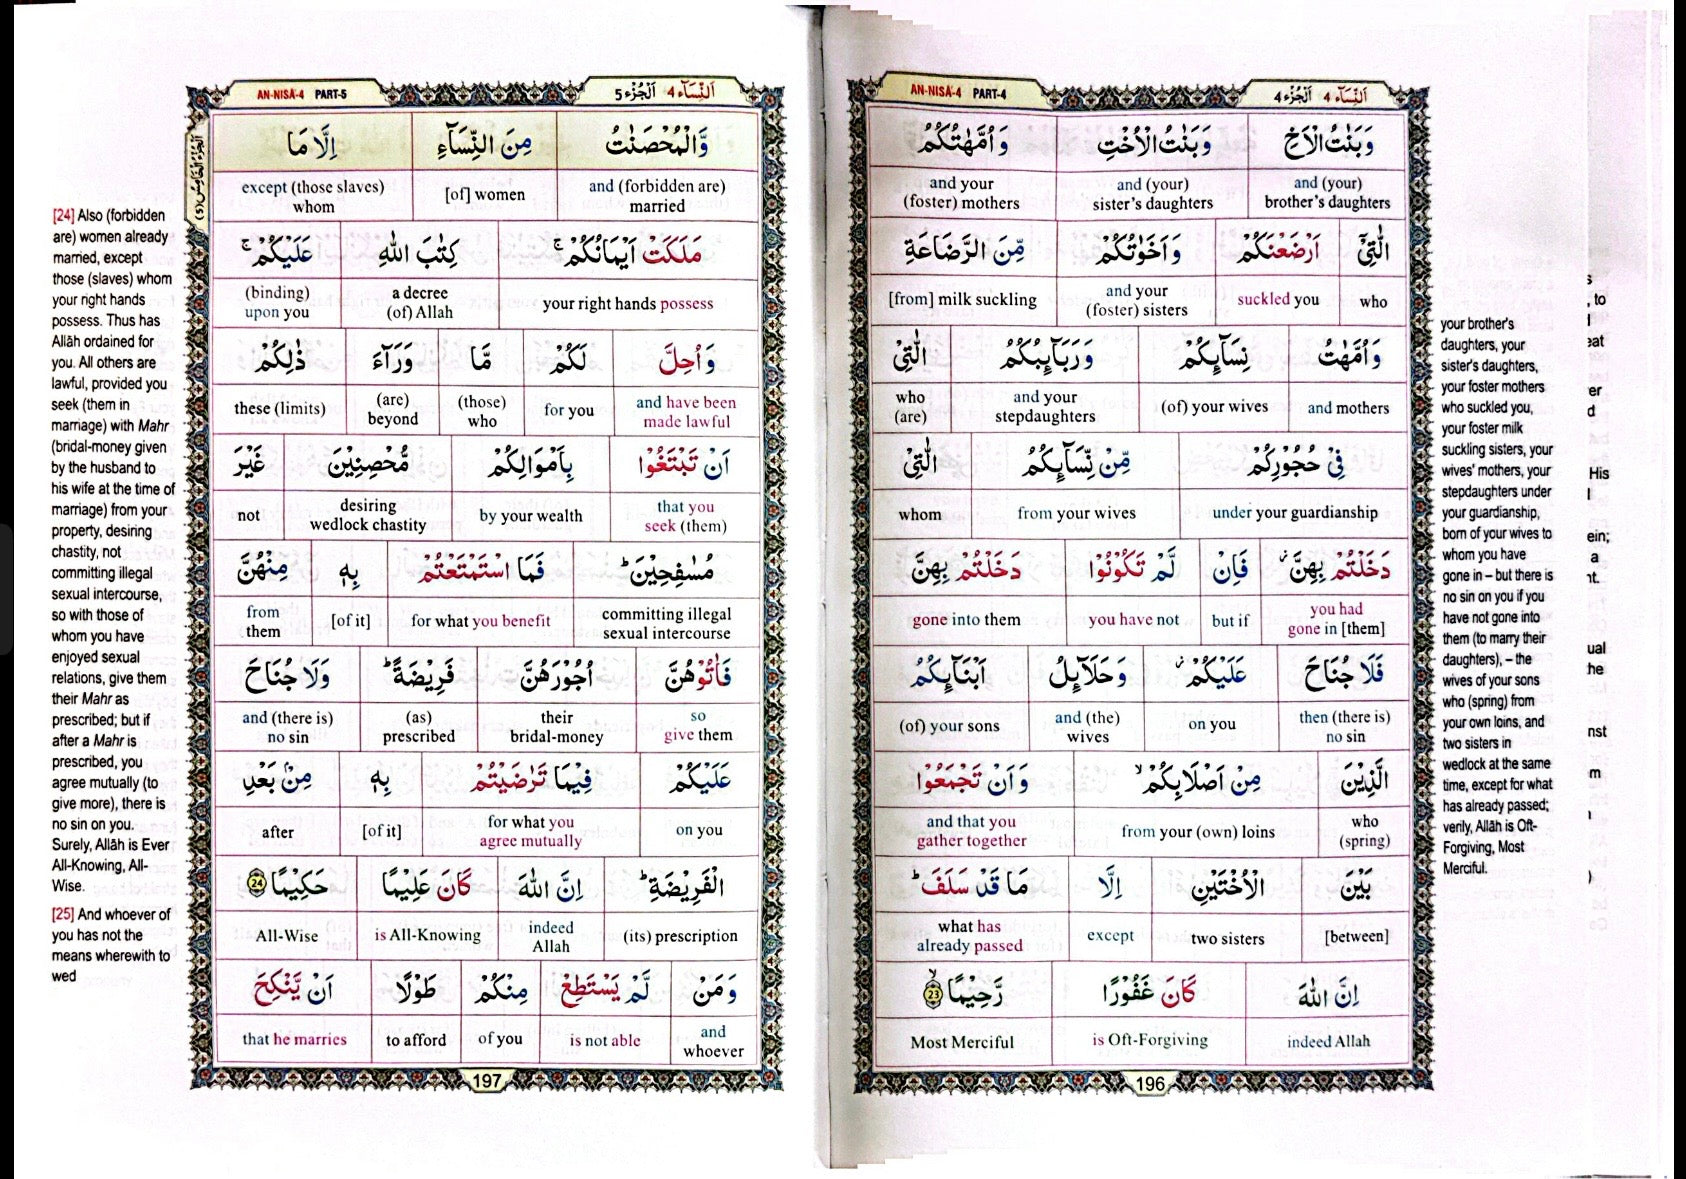 AN-NISĀ-4 PART-4 اَلنِّسَآء 4 اَلْجُزْء 4
وَبَنٰتُ الْاَخِ وَبَنٰتُ الْاُخْتِ وَاُمَّهٰتُكُمُ
and (your) brother's daughters and (your) sister's daughters and your (foster) mothers
الّٰتِیْۤ اَرْضَعْنَكُمْ وَاَخَوٰتُكُمْ مِّنَ الرَّضَاعَةِ
who suckled you and your (foster) sisters [from] milk suckling
وَاُمَّهٰتُ نِسَآىِٕكُمْ وَرَبَآىِٕبُكُمُ الّٰتِیْ
and mothers (of) your wives and your stepdaughters who (are)
فِیْ حُجُوْرِكُمْ مِّنْ نِّسَآىِٕكُمُ الّٰتِیْ
under your guardianship from your wives whom
دَخَلْتُمْ بِهِنَّ ؗ فَاِنْ لَّمْ تَكُوْنُوْا دَخَلْتُمْ بِهِنَّ
you had gone in [them] but if you have not gone into them
فَلَا جُنَاحَ عَلَیْكُمْ ؗ وَحَلَآىِٕلُ اَبْنَآىِٕكُمُ
then (there is) no sin on you and (the) wives (of) your sons
الَّذِیْنَ مِنْ اَصْلَابِكُمْ ۙ وَاَنْ تَجْمَعُوْا
who (spring) from your (own) loins and that you gather together
بَیْنَ الْاُخْتَیْنِ اِلَّا مَا قَدْ سَلَفَ ؕ
[between] two sisters except what has already passed
اِنَّ اللّٰهَ كَانَ غَفُوْرًا رَّحِیْمًا ۙ 23
indeed Allah is Oft-Forgiving Most Merciful
196
your brother's
daughters, your
sister's daughters,
your foster mothers
who suckled you,
your foster milk
suckling sisters, your
wives' mothers, your
stepdaughters under
your guardianship,
born of your wives to
whom you have
gone in – but there is
no sin on you if you
have not gone into
them (to marry their
daughters), – the
wives of your sons
who (spring) from
your own loins, and
two sisters in
wedlock at the same
time, except for what
has already passed;
verily, Allāh is Oft-
Forgiving, Most
Merciful.
AN-NISĀ-4 PART-5 اَلنِّسَآء 4 اَلْجُزْء 5
وَّالْمُحْصَنٰتُ مِنَ النِّسَآءِ اِلَّا مَا
and (forbidden are) married [of] women except (those slaves) whom
مَلَكَتْ اَیْمَانُكُمْ ۚ كِتٰبَ اللّٰهِ عَلَیْكُمْ ۚ
your right hands possess a decree (of) Allah (binding) upon you
وَاُحِلَّ لَكُمْ مَّا وَرَآءَ ذٰلِكُمْ
and have been made lawful for you (those) who (are) beyond these (limits)
اَنْ تَبْتَغُوْا بِاَمْوَالِكُمْ مُّحْصِنِیْنَ غَیْرَ
that you seek (them) by your wealth desiring wedlock chastity not
مُسٰفِحِیْنَ ؕ فَمَا اسْتَمْتَعْتُمْ بِهٖ مِنْهُنَّ
committing illegal sexual intercourse for what you benefit [of it] from them
فَاٰتُوْهُنَّ اُجُوْرَهُنَّ فَرِیْضَةً ؕ وَلَا جُنَاحَ
so give them their bridal-money (as) prescribed and (there is) no sin
عَلَیْكُمْ فِیْمَا تَرٰضَیْتُمْ بِهٖ مِنْۢ بَعْدِ
on you for what you agree mutually [of it] after
الْفَرِیْضَةِ ؕ اِنَّ اللّٰهَ كَانَ عَلِیْمًا حَكِیْمًا 24
(its) prescription indeed Allah is All-Knowing All-Wise
وَمَنْ لَّمْ یَسْتَطِعْ مِنْكُمْ طَوْلًا اَنْ یَّنْكِحَ
and whoever is not able of you to afford that he marries
197
[24] Also (forbidden
are) women already
married, except
those (slaves) whom
your right hands
possess. Thus has
Allāh ordained for
you. All others are
lawful, provided you
seek (them in
marriage) with Mahr
(bridal-money given
by the husband to
his wife at the time of
marriage) from your
property, desiring
chastity, not
committing illegal
sexual intercourse,
so with those of
whom you have
enjoyed sexual
relations, give them
their Mahr as
prescribed; but if
after a Mahr is
prescribed, you
agree mutually (to
give more), there is
no sin on you.
Surely, Allāh is Ever
All-Knowing, All-
Wise.
[25] And whoever of
you has not the
means wherewith to
wed